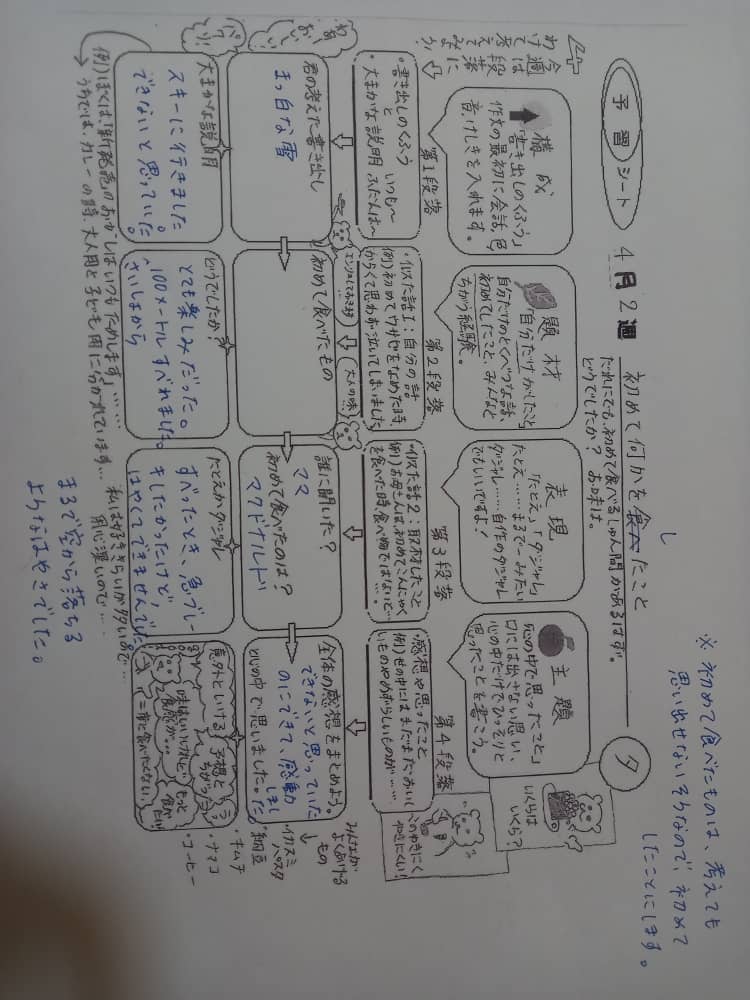 予習シート
4月2週
初めて何かを食べたこと
し
だれにでも、初めて食べるしゅん間があるはず。
どうでしたか? お味は。
タ
※初めて食べたものは、考えても
思い出せないそうなので、初めて
したことにします。
今週は段落に
わけて考えてみよう!
構成
「書き出しのくふう」
作文の最初に会話、色
音、けしきを入れます。
題材
「自分だけがしたこと」
自分だけのとくべつな話、
初めてしたこと、みんなと
ちがう経験。
表現
「たとえ」「ダジャレ」
たとえ……まるで~みたい
ダジャレ……自作のダジャレ
でもいいですよ!
主題
「心の中で思ったこと」
口には出せない思い、
心の中だけでひっそりと
思ったことを書こう。
いくらは
いくら?
このやきにく
やきにくい!
第1段落
・書き出しのくふう
と
・大まかな説明
いつも~
ふだんは~
第2段落
・似た話1:自分の話。
例)初めてワサビをなめた時、
からくて思わず泣いてしまいました
第3段落
・似た話2:取材したこと
例)お母さんは、初めてこんにゃく
を食べた時、食べ物ではないと…。
第4段落
・感想や思ったこと
例)世の中にはまだまだおいし
いものやめずらしいものが……
君の考えた書き出し
まっ白な雪
初めて食べたもの
誰に聞いた?
ママ
初めて食べたのは?
マクドナルド
全体の感想をまとめよう。
できないと思っていた
のにできて、感動しました。
と心の中で思いました。
みんながよくあげる
もの
・イカスミパスタ
・納豆
・キムチ
・ナマコ
・コーヒー
大まかな説明
スキーに行きました
できないと思っていた。
どうでしたか?
とても楽しみだった。
100メートルすべれました。
さいしょから
たとえかダジャレ
すべったとき、急ブレー
キしたかったけど、
はやくてできませんでした
まるで空から落ちる
ようなはやさでした。
意外といける
予想と
ちがった
味はいいけど
食感が…
もっと
食べたい
二度と食べたくない
例)ぼくは「新発売のおかしはいつもためします」……
うちでは、カレーの時、大人用と子ども用に分かれています…
私は好ききらいが多いので…
用心深いので…